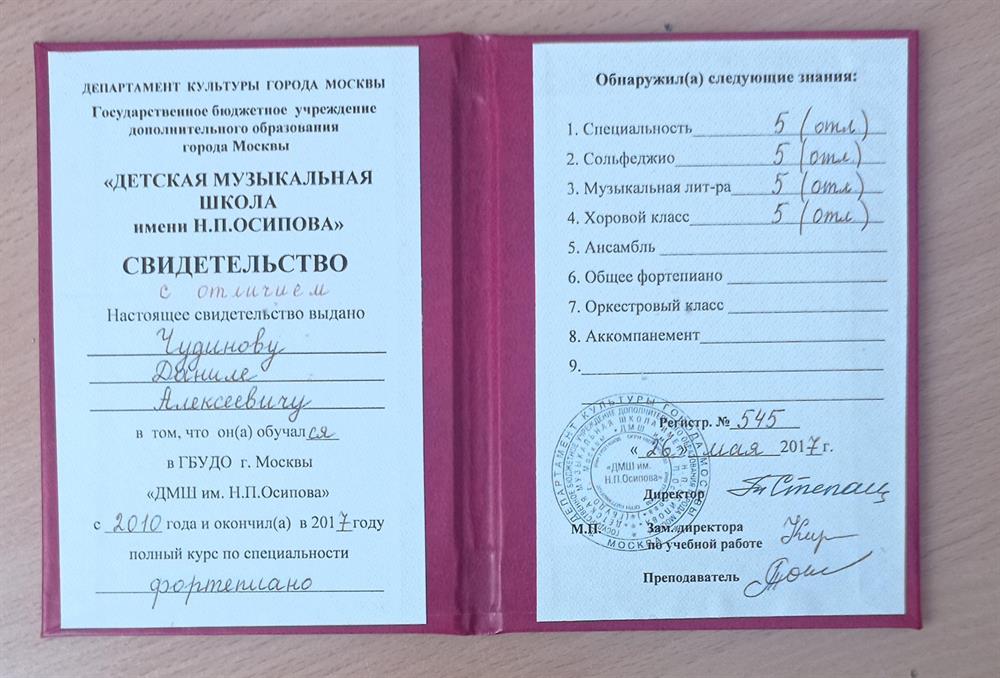 ДЕПАРТАМЕНТ КУЛЬТУРЫ ГОРОДА МОСКВЫ
Государственное бюджетное учреждение
дополнительного образования
города Москвы
«ДЕТСКАЯ МУЗЫКАЛЬНАЯ
ШКОЛА
имени Н.П.ОСИПОВА»
СВИДЕТЕЛЬСТВО
с отличием
Настоящее свидетельство выдано
Чудинову
Даниле
Алексеевичу
в том, что он(а) обучался
в ГБУДО г. Москвы
«ДМШ им. Н.П.Осипова»
с 2010 года и окончил(а) в 2017 году
полный курс по специальности
фортепиано
Обнаружил(а) следующие знания:
1. Специальность 5 (отл)
2. Сольфеджио 5 (отл)
3. Музыкальная лит-ра 5 (отл)
4. Хоровой класс 5 (отл)
5. Ансамбль
6. Общее фортепиано
7. Оркестровый класс
8. Аккомпанемент
9.
Регистр. № 545
«26» мая 2017 г.
Директор
М.П.
Зам. директора
по учебной работе
Преподаватель
ДЕПАРТАМЕНТ КУЛЬТУРЫ ГОРОДА МОСКВЫ
«ДМШ им.
Н.П.Осипова»
МОСКВА